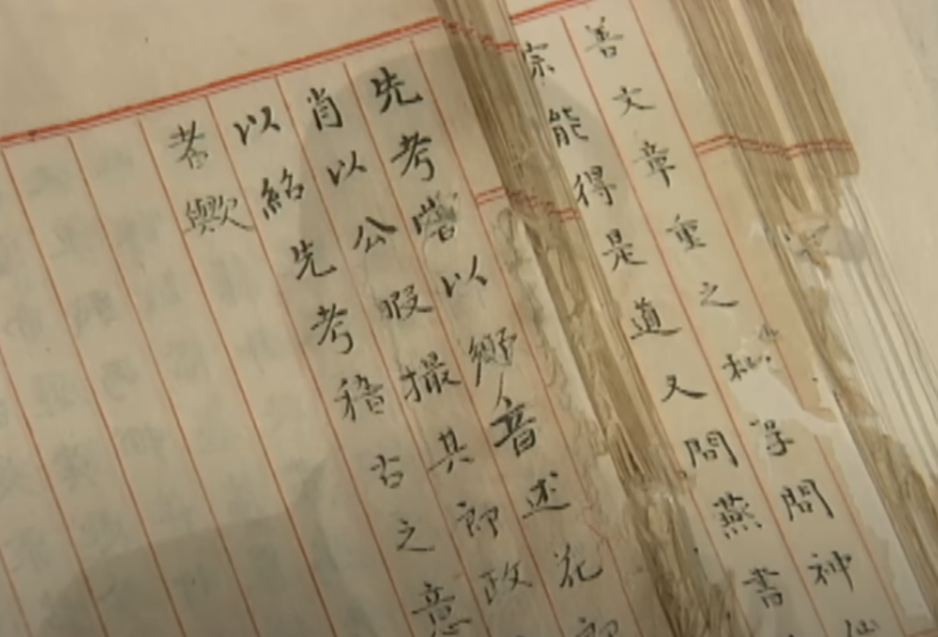 善文章重之学問神仙
宗能得是道又問燕書
先考嘗以鄉音述花
肖以公暇撮其郎政
以紹先考稽古之意
者歟